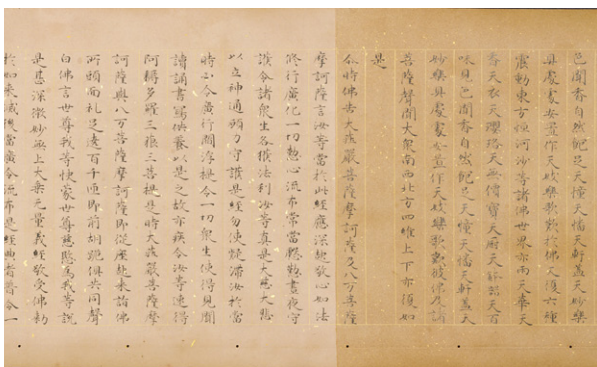 色聞香自然飽足天幢天幡天軒蓋天妙樂
具處處安置作天妓樂歌歎於佛又復六種
震動東方恒河沙等諸佛世界亦雨天華天
香天衣天瓔珞天无價寶天廚天鉢器天百
味見色聞香自然飽足天幢天幡天軒蓋天
妙樂具處處安置作天妓樂歌歎彼佛及諸
菩薩聲聞大衆南西北方四維上下亦復如
是
尒時佛告大莊嚴菩薩摩訶薩及八万菩薩
摩訶薩言汝等當於此經應深起敬心如法
修行廣化一切懃心流布常當慇懃晝夜守
護令諸衆生各獲法利汝等真是大慈大悲
以立神通願力守護是經勿使疑滯汝於當
時必令廣行閻浮提令一切衆生使得見聞
讀誦書寫供養以是之故亦疾令汝等速得
阿耨多羅三藐三菩提是時大莊嚴菩薩摩
訶薩與八万菩薩摩訶薩即從座起來詣佛
所頭面礼足遶百千匝即前胡跪俱共同聲
白佛言世尊我等快蒙世尊慈愍爲我等說
是甚深微妙無上大乘无量義經敬受佛勅
於如來滅後當廣令流布是經典者普令一